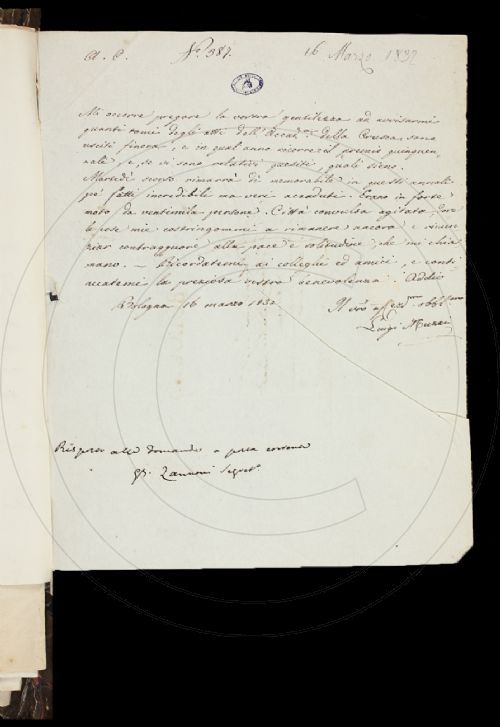 A. C. N.° 387. 16 Marzo 1832
Mi occorre pregare la vostra gentilezza ad avvisarmi
quanti tomi degli atti dell'Accad.ia della Crusca, sono
usciti finora, e in qual anno ricorre il premio quinquen-
nale e se vi sono relativi quesiti, quali sieno.
Martedì scorso rimarrà dì memorabile in questi annali
pe' fatti incredibili ma veri accaduti. Erano in forte
moto da ventimila persone. Città convulsa agitata, dove
le cose mie costringonmi a rimanere ancora e
contraggenio alla pace e solitudine che mi chia
mano. — Ricordatemi ai colleghi ed amici, e conti-
nuatemi la preziosa vostra benevolenza. Addio
Bologna 16 marzo 1832
Il vro aff.mo obbl.mo
Luigi Muzzi
Risposto alle domande a posta corrente
G. B. Zannoni Segret.o